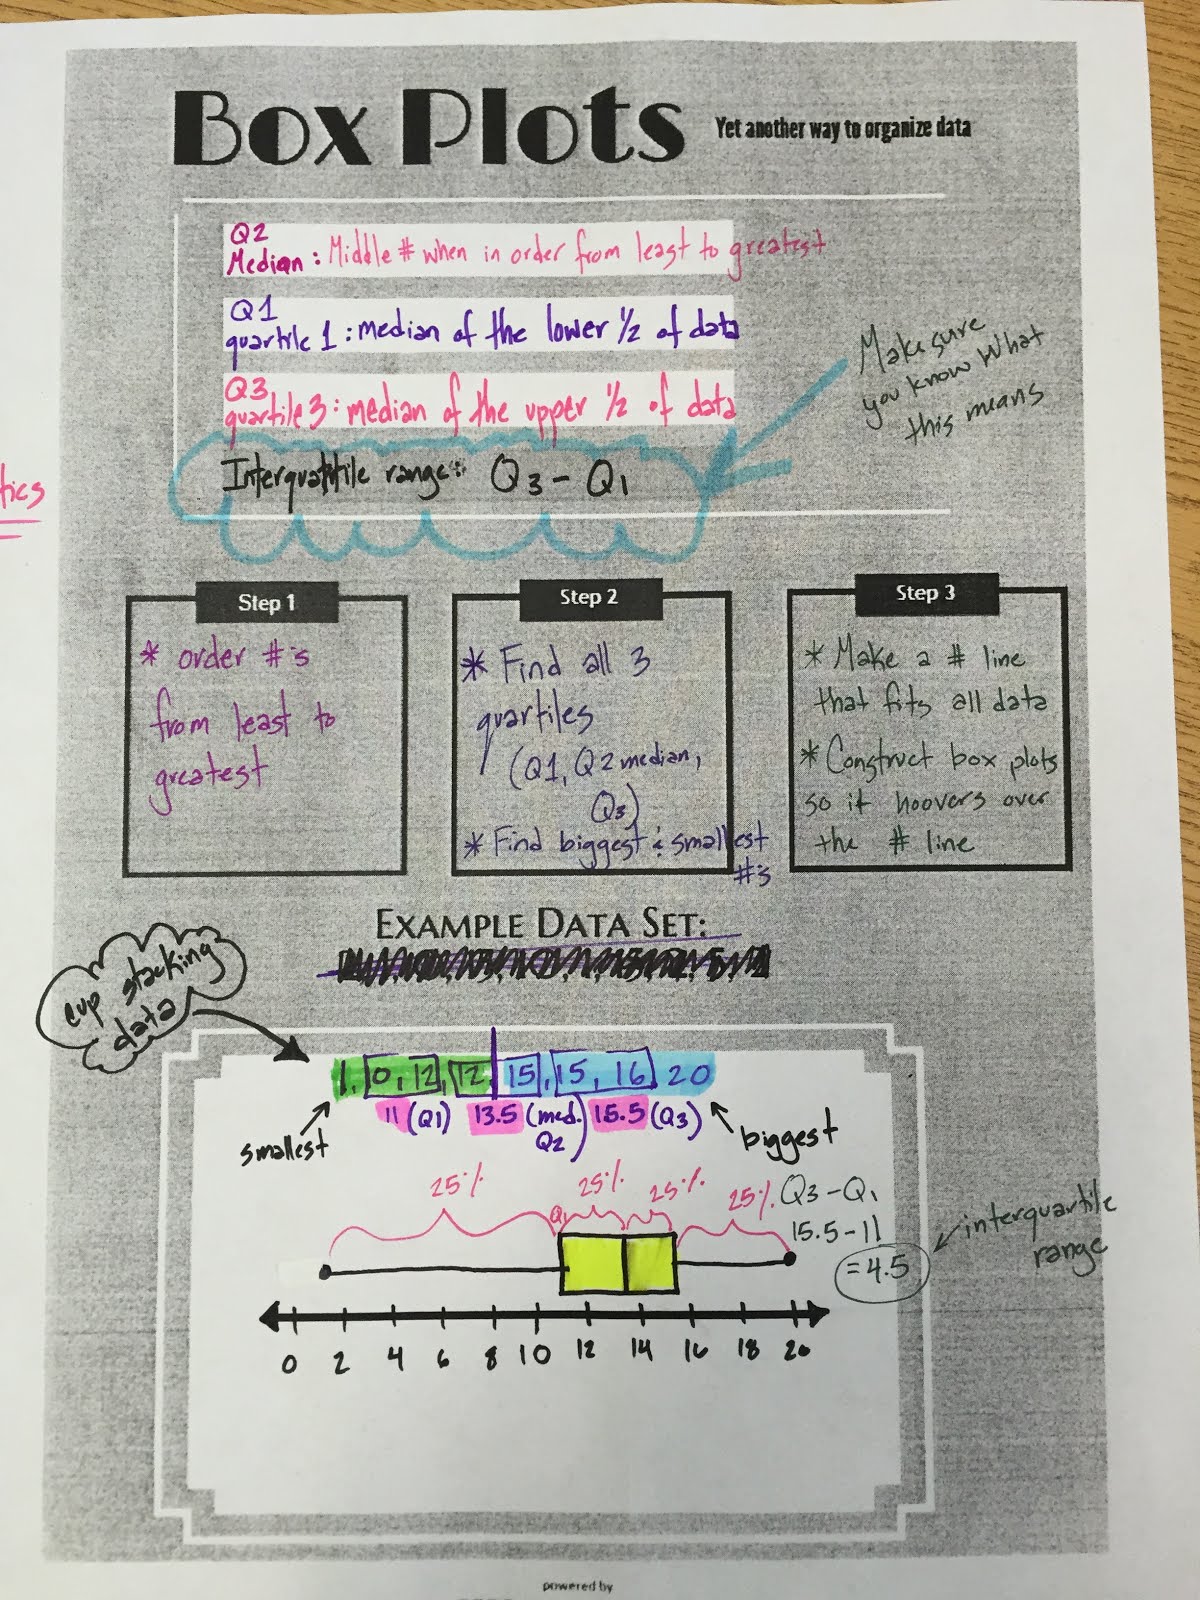 Box Plots
Yet another way to organize data
Q2
Median: Middle # when in order from least to greatest
Q1
quartile 1: median of the lower 1/2 of data
Q3
quartile 3: median of the upper 1/2 of data
Interquartile range: Q3 - Q1
Make sure
you know what
this means
tics
Step 1
* order #'s
from least to
greatest
Step 2
* Find all 3
quartiles
(Q1, Q2 median,
Q3)
* Find biggest & smallest
#'s
Step 3
* Make a # line
that fits all data
* Construct box plots
so it hoovers over
the # line
EXAMPLE DATA SET:
cup stacking
data
1, 10, 12, 12, 15, 15, 16, 20
11 (Q1) 13.5 (med. Q2) 15.5 (Q3)
smallest
biggest
25% 25% 25% 25%
Q1
Q3 - Q1
15.5 - 11
= 4.5
interquartile
range
0 2 4 6 8 10 12 14 16 18 20
powered by